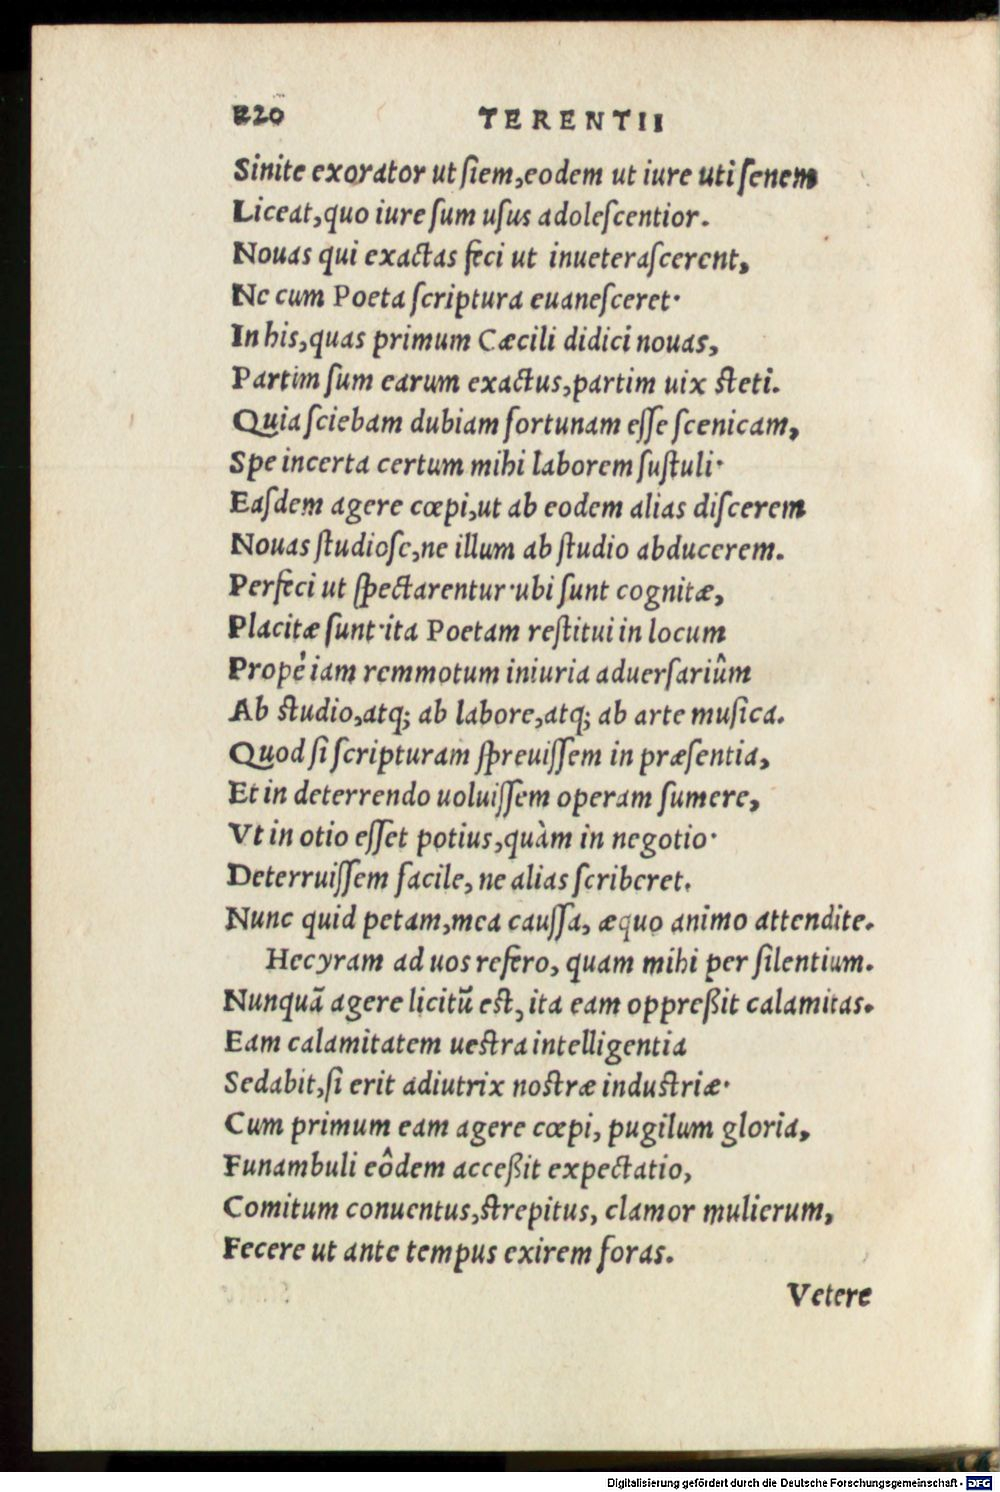 220 TERENTII
Sinite exorator ut ſiem,eodem ut iure uti ſenem
Liceat,quo iure ſum uſus adoleſcentior.
Nouas qui exactas feci ut inueteraſcerent,
Ne cum Poeta ſcriptura euaneſceret·
In his,quas primum Cæcili didici nouas,
Partim ſum earum exactus,partim uix ſteti.
Quia ſciebam dubiam fortunam eſſe ſcenicam,
Spe incerta certum mihi laborem ſuſtuli·
Eaſdem agere cœpi,ut ab eodem alias diſcerem
Nouas ſtudioſe,ne illum ab ſtudio abducerem.
Perfeci ut ſpectarentur·ubi ſunt cognitæ,
Placitæ ſunt·ita Poetam reſtitui in locum
Propè iam remmotum iniuria aduerſariûm
Ab ſtudio,atq; ab labore,atq; ab arte muſica.
Quod ſi ſcripturam ſpreuiſſem in præſentia,
Et in deterrendo uoluiſſem operam ſumere,
Vt in otio eſſet potius,quàm in negotio·
Deterruiſſem facile, ne alias ſcriberet.
Nunc quid petam,mea cauſſa, æquo animo attendite.
Hecyram ad uos refero, quam mihi per ſilentium.
Nunquã agere licitũ eſt, ita eam oppreßit calamitas.
Eam calamitatem ueſtra intelligentia
Sedabit,ſi erit adiutrix noſtræ induſtriæ·
Cum primum eam agere cœpi, pugilum gloria,
Funambuli eôdem acceßit expectatio,
Comitum conuentus,ſtrepitus, clamor mulierum,
Fecere ut ante tempus exirem foras.
Vetere
Digitalisierung gefördert durch die Deutsche Forschungsgemeinschaft - DFG